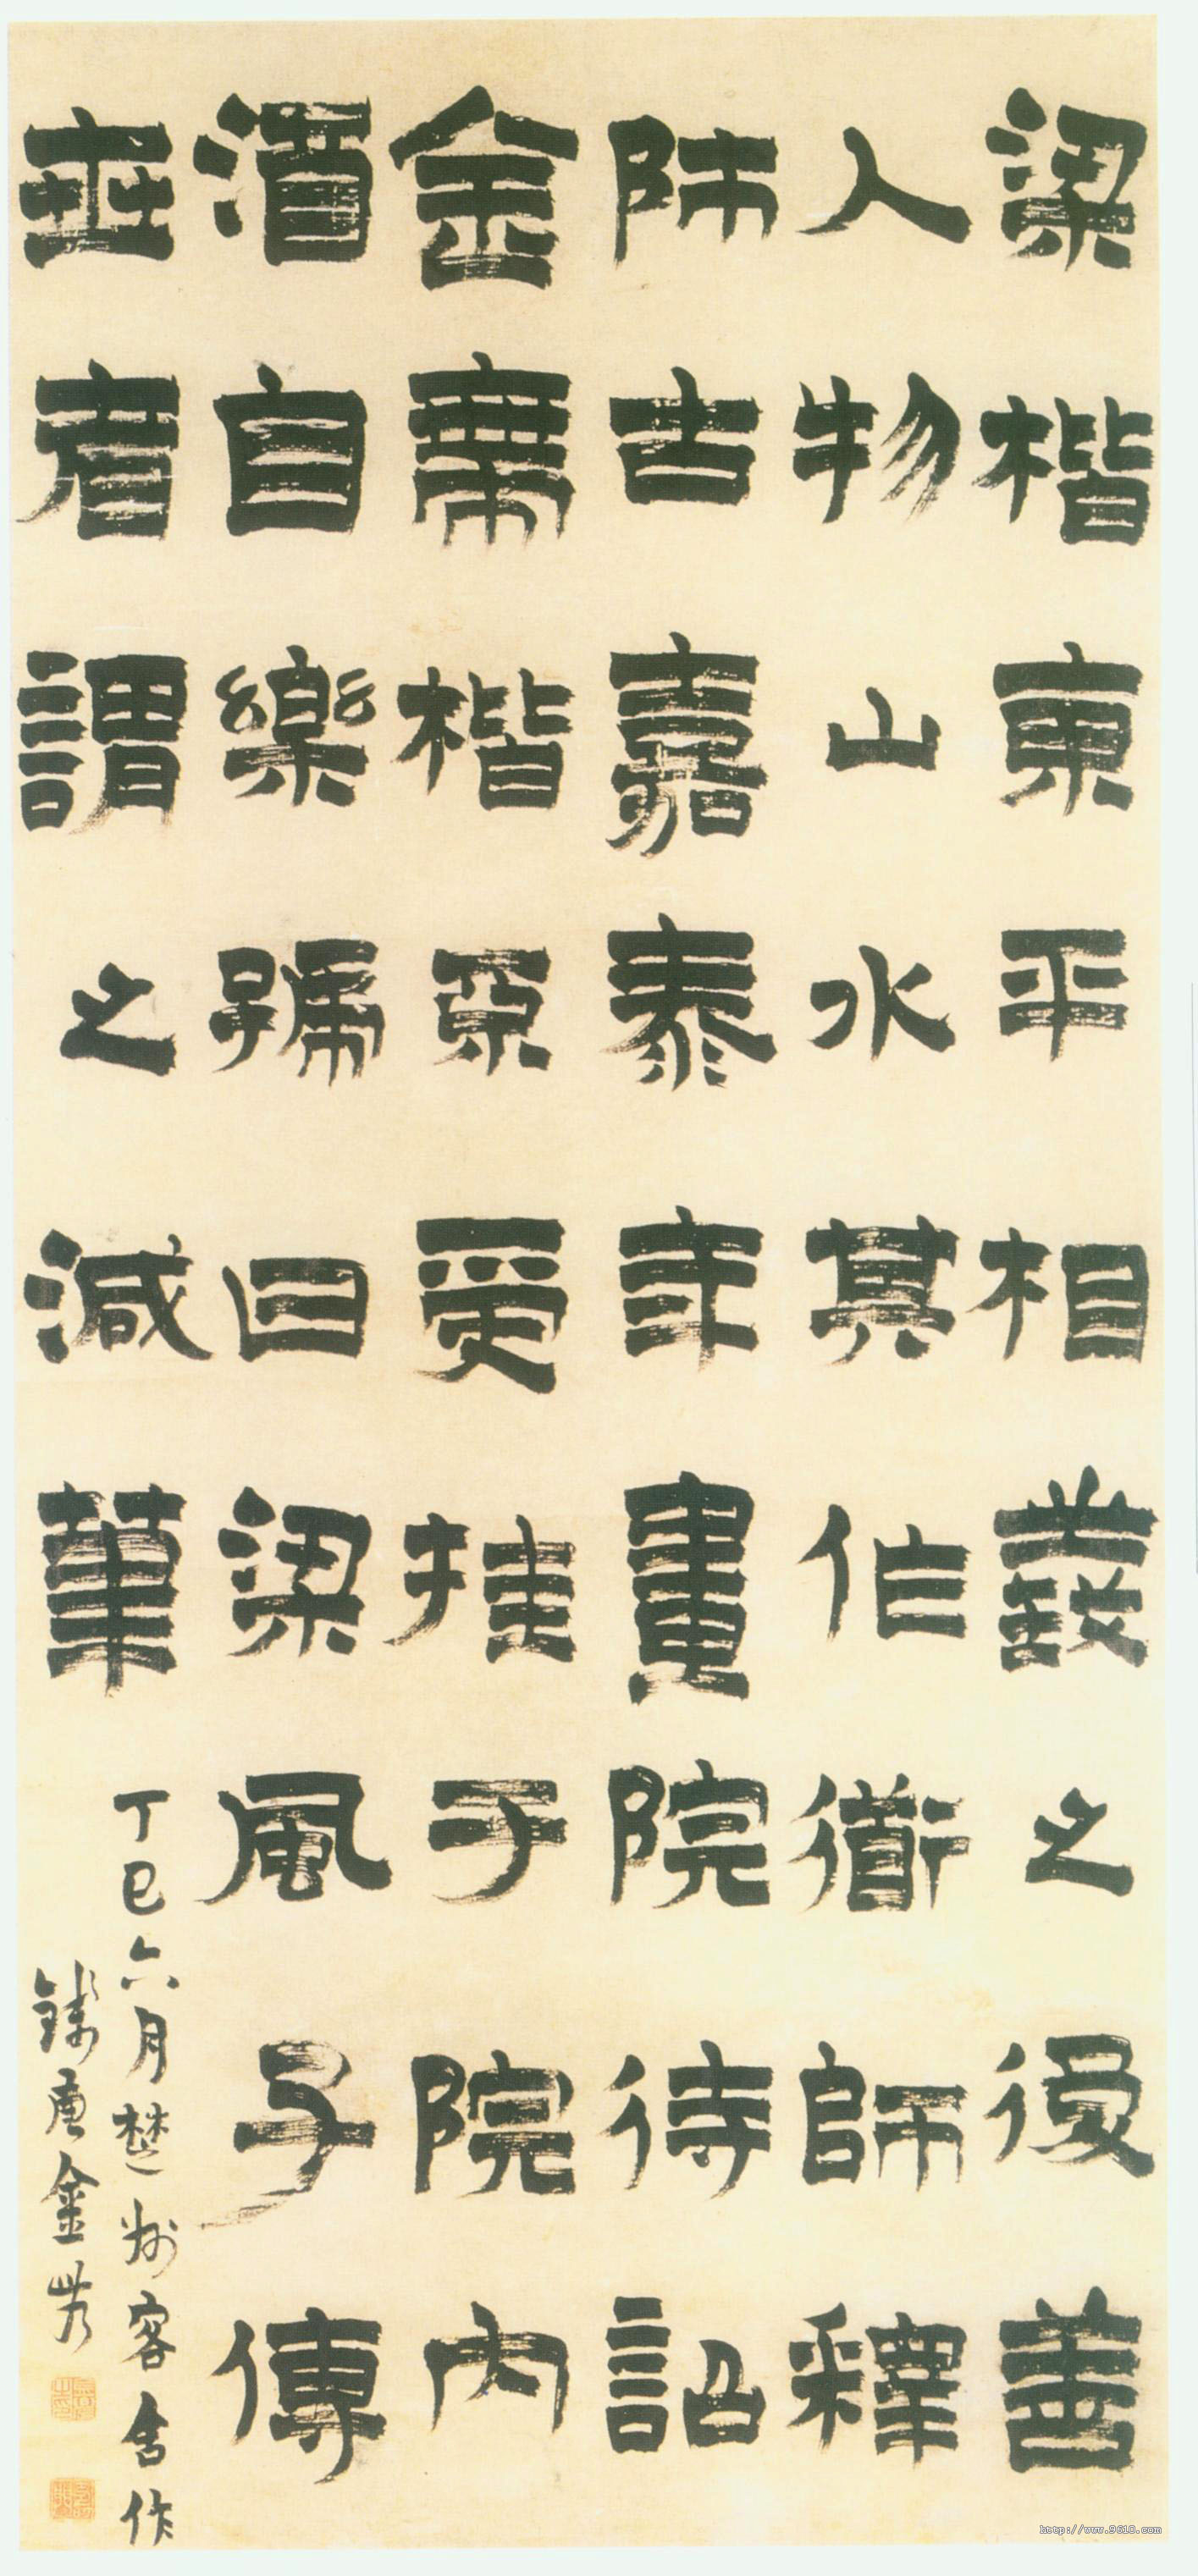 梁楷東平相義之後善
人物山水其作衜師釋
肺古嘉泰年畫院待詔
金帶楷

受挂于院內
酒自樂號曰梁風子傳
世者謂之減筆
丁巳六月楚州客舍作
錢唐金農
http://www.9610.com